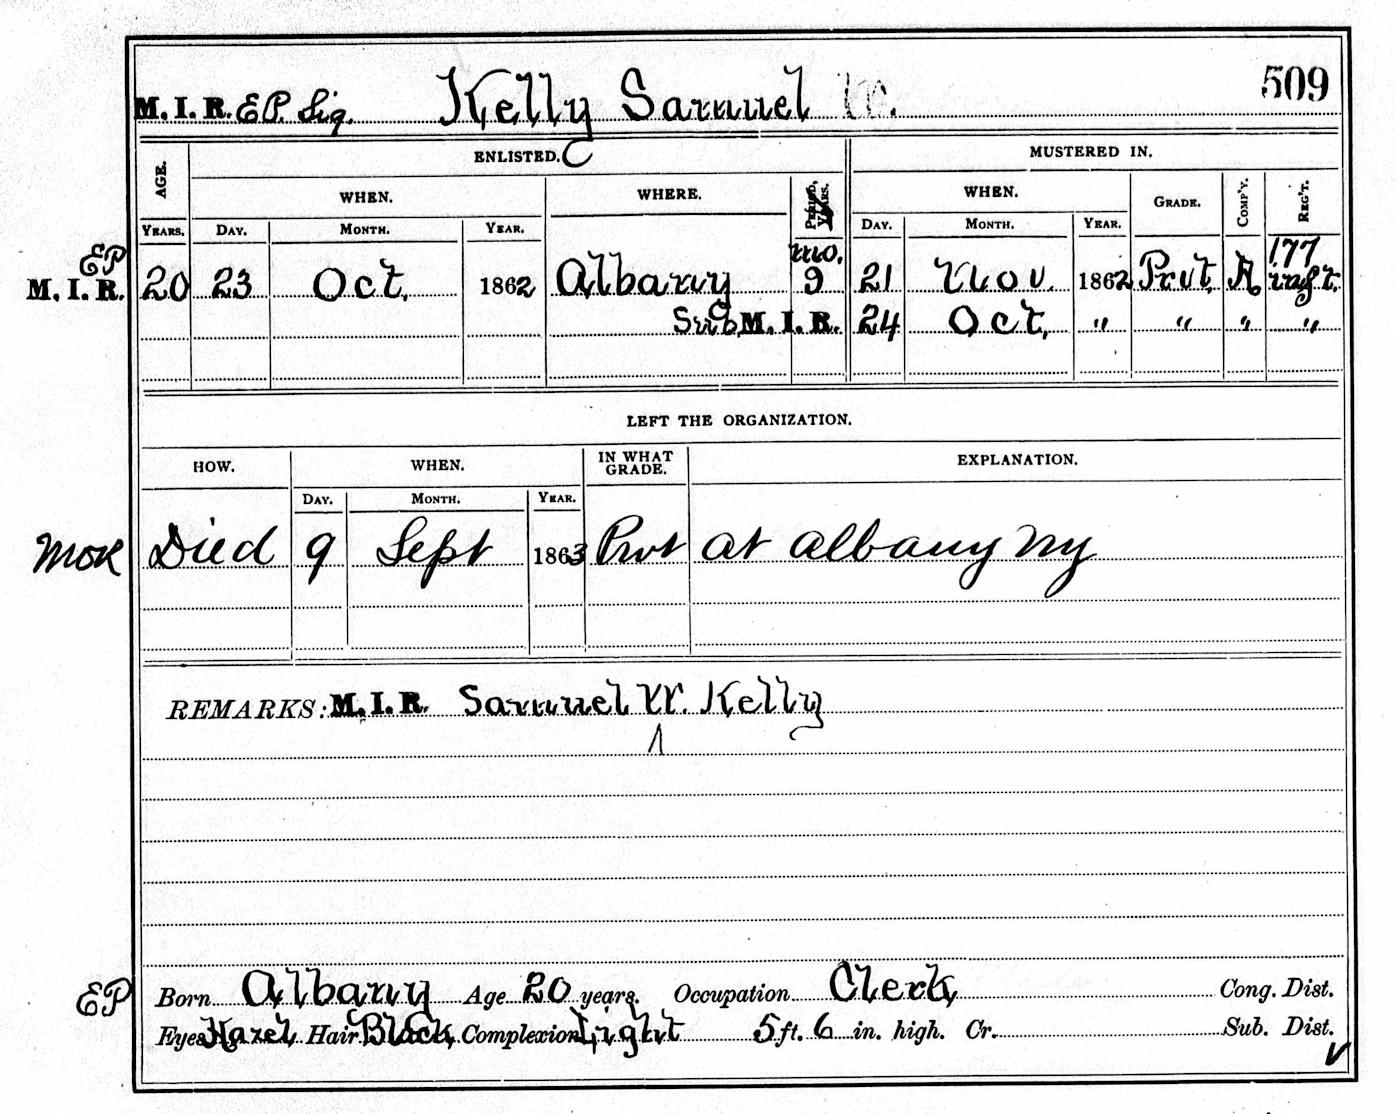 M. I. R. EP. Sig. Kelly Samuel W. 509
AGE. ENLISTED. MUSTERED IN.
WHEN. WHERE. PERIOD, YEARS. WHEN. GRADE. COMP'Y. REG'T.
YEARS. DAY. MONTH. YEAR. DAY. MONTH. YEAR.
EP mo. 177
M. I. R. 20 23 Oct. 1862 Albany 9 21 Nov. 1862 Prvt. A. inft.
Sub. M. I. R. 24 Oct. " " " "
LEFT THE ORGANIZATION.
HOW. WHEN. IN WHAT GRADE. EXPLANATION.
DAY. MONTH. YEAR.
MOR Died 9 Sept 1863 Prvt at Albany NY
REMARKS: M. I. R. Samuel W. Kelly
EP Born Albany Age 20 years. Occupation Clerk Cong. Dist.
Eyes Hazel Hair Black Complexion Light 5 ft. 6 in. high. Cr. Sub. Dist.